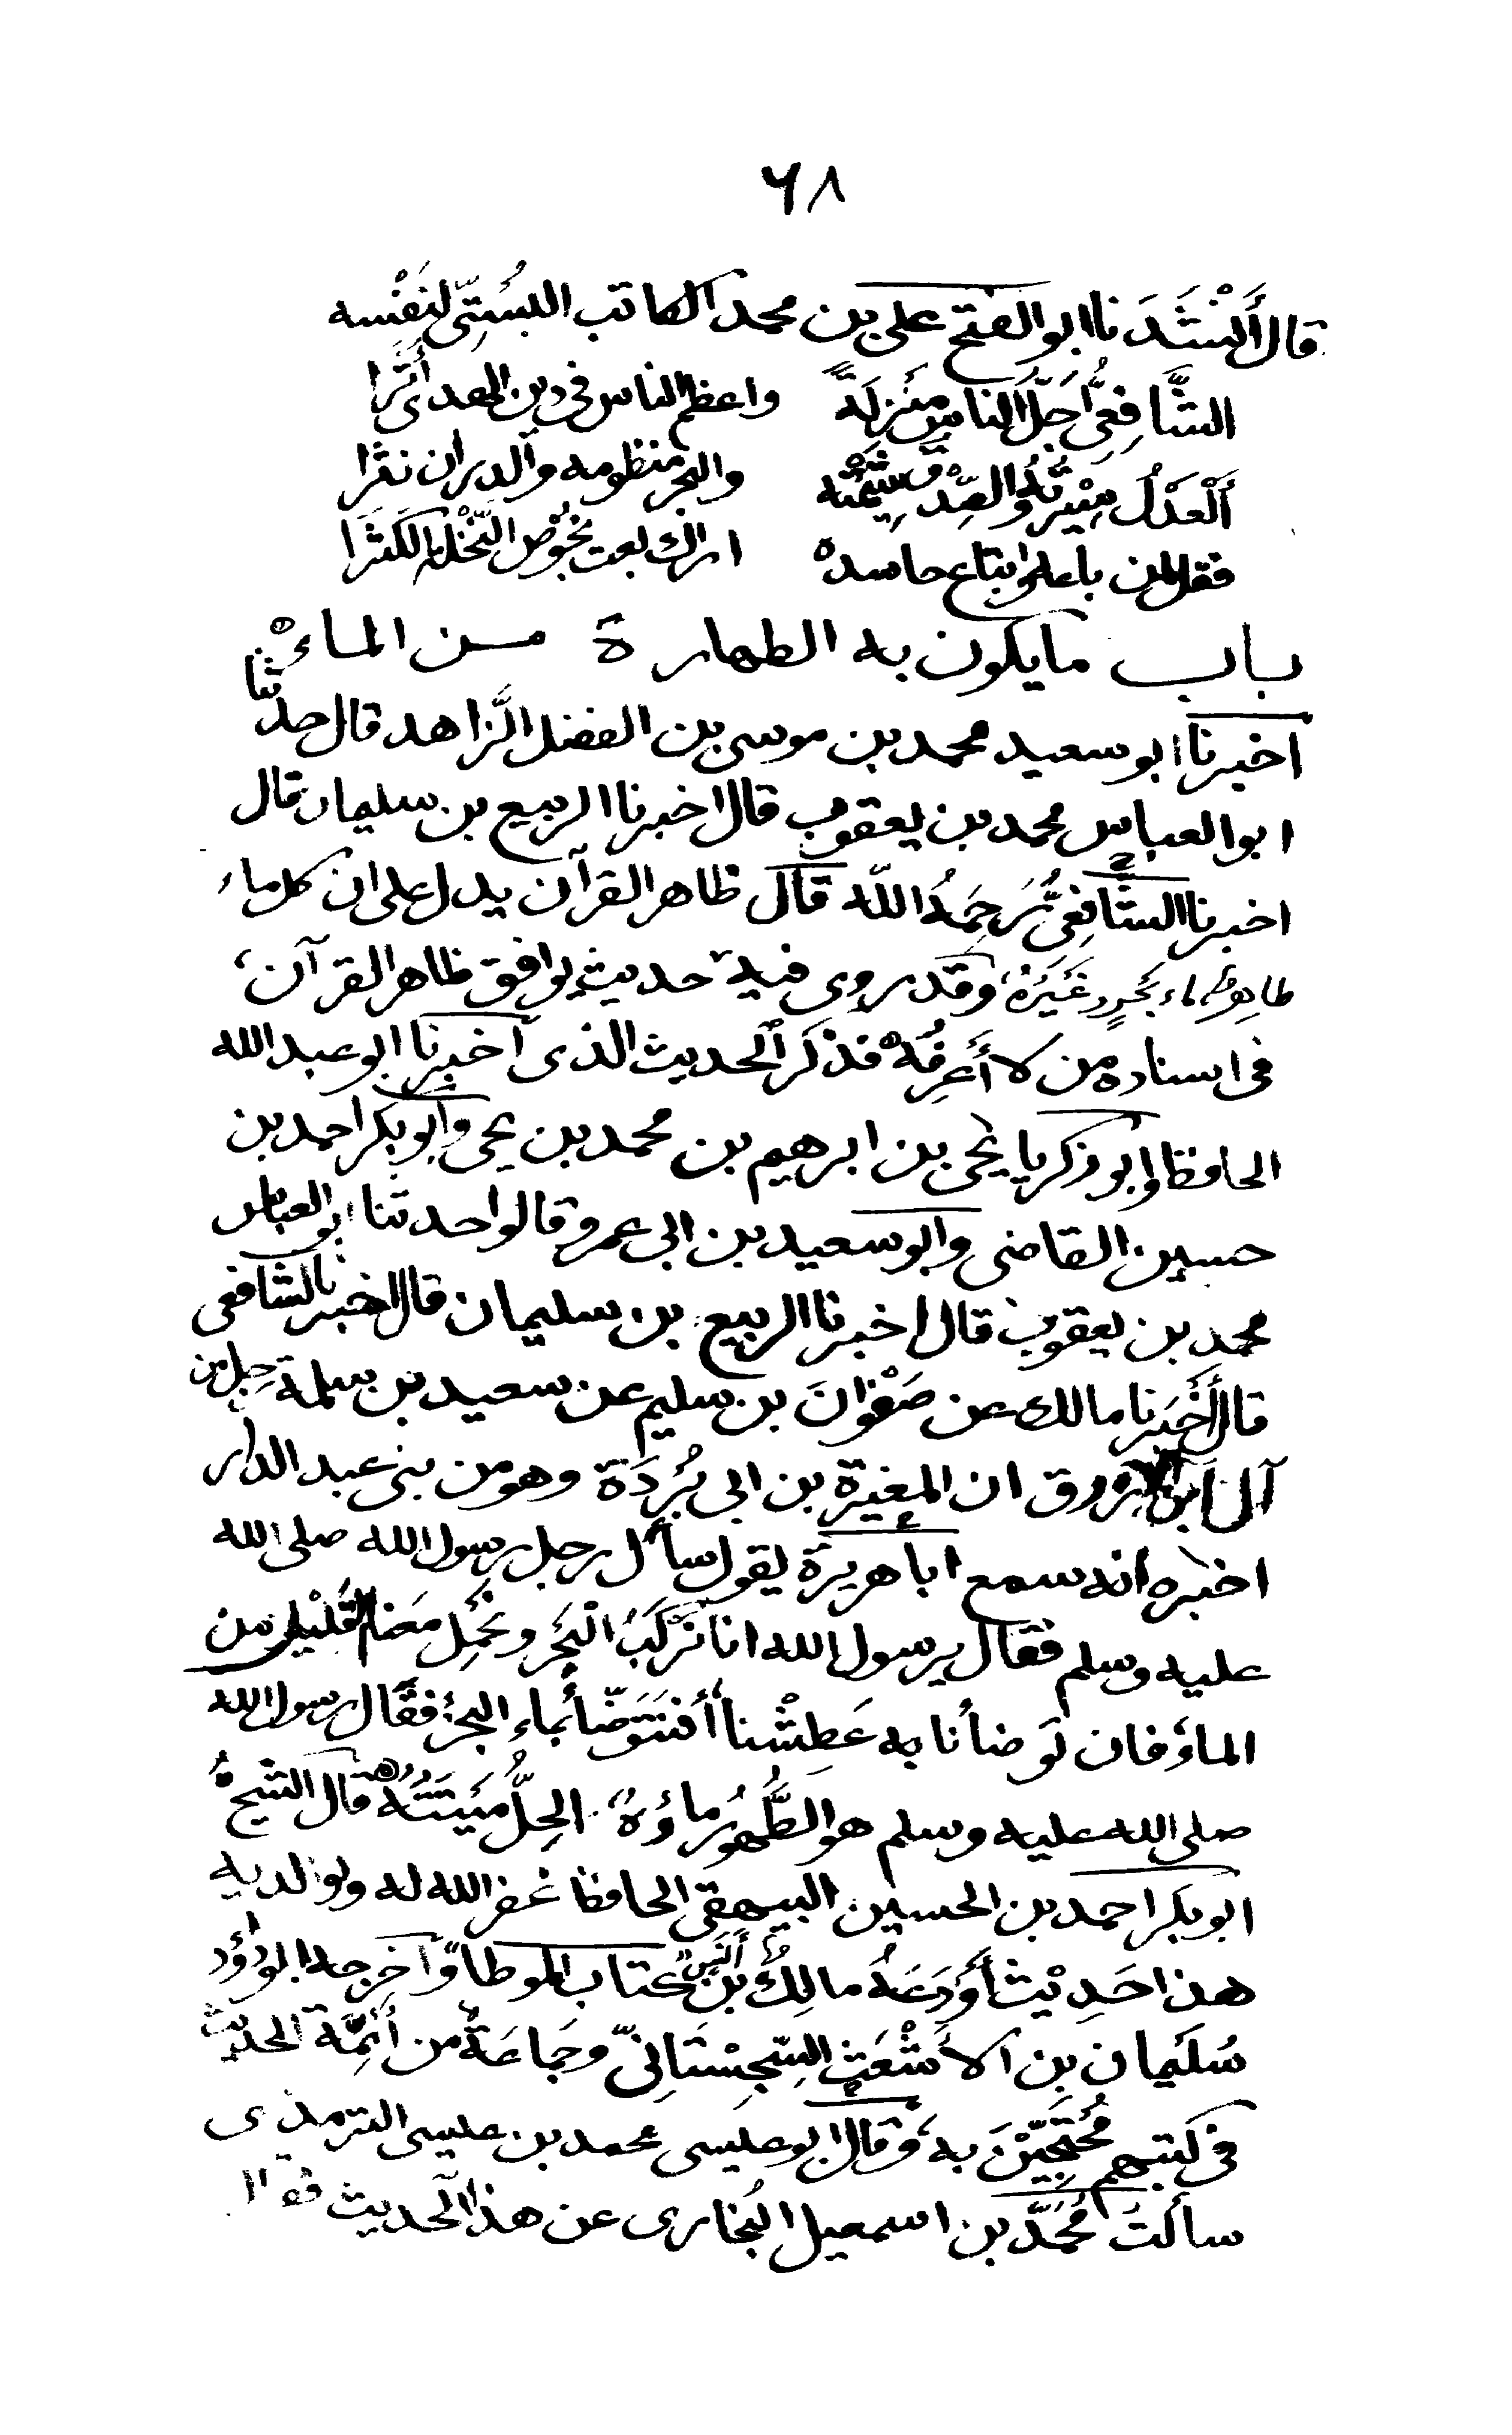 ٦٨
قال أَنْشَدَنا ابو الفتح على بن محمد الكاتب البُستِيّ لنَفْسه
الشَّافِعِىُّ اَجَلُّ الناسِ مَنْزِلَةً واعظم الناس فى دين الهدى أَثَرا
اَلْعَدْلُ سِيْرَتُهُ والصِّدْقُ شِيْمَتُه والبحر منظومه والدر ان نثرا
فقل لمن باعه وابتاع حاسده اراك بعت بخُوْصِ النَّخْلَةِ الكَثَرَا
باب ما يكون به الطهارة مـن الماء
اخبرنا ابو سعيد محمد بن موسى بن الفضل الزَّاهد قال حدثنا
ابو العباس محمد بن يعقوب قال اخبرنا الربيع بن سليمان قال
اخبرنا الشَّافِعِىُّ رَحِمَهُ اللّه قال ظاهر القرآن يدل على ان كل ماء
طاهر ماء بحر وغَيْرُهُ وقد روى فيه حديث يوافق ظاهر القرآن
فى اسناده من لا أَعْرِفُهُ فذكر الحديث الذى اخبرنا ابو عبد الله
الحافظ وابو زكريا يحى بن ابرهيم بن محمد بن يحى وابو بكر احمد بن
حسين القاضى وابو سعيد بن ابى عمرو قالوا حدثنا ابو العباس
محمد بن يعقوب قال اخبرنا الربيع بن سليمان قال اخبرنا الشافعى
قال أَخْبَرَنا مالك عن صَفْوَانَ بن سليم عن سعيد بن سلمة رجل من
آل ابن الازرق ان المغيرة بن ابى بُرْدَة وهو من بنى عبد الدار
اخبره انه سمع ابا هريرة يقول سأل رجل رسول الله صلى الله
عليه وسلم فقال يرسول الله انا نَرْكَبُ الْبَحْرَ ونَحْمِلُ مَعَنا القَلِيْلَ من
الماء فان تَوضأنا به عَطِشْنا أَفَنَتَوَضّأُ بماء البحر فقَال رسول الله
صلى الله عليه وسلم هو الطَّهُورُ ماؤُهُ الحِلُّ مَيْتَتُهُ قال الشيخُ
ابو بكر احمد بن الحسين البيهقى الحافظ غفر الله له ولوالديه
هذا حَدِيْث أَوْدَعَهُ مالِكُ بن أَنَسٍ كتاب الموطا وَاخرجه ابو داؤد
سُلَيمان بن الأَشْعَثِ السِّجِسْتَانِىّ وجَماعَةٌ من أَئِمَّة الحديث
فى كتبهم مُحْتَجِّيْنَ به وقال ابو عيسى محمد بن عيسى الترمذى
سألتُ مُحَمَّد بن اسمعيل البُخارى عن هذا الحديث